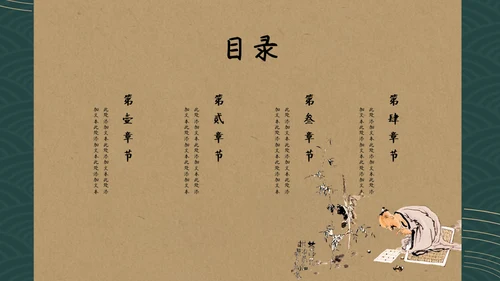 目录
第壹章节
此处添加文本此处添加文本此处添
加文本此处添加文本此处添加文本
第贰章节
此处添加文本此处添加文本此处添
加文本此处添加文本此处添加文本
第叁章节
此处添加文本此处添加文本此处添
加文本此处添加文本此处添加文本
第肆章节
此处添加文本此处添加文本此处添
加文本此处添加文本此处添加文本